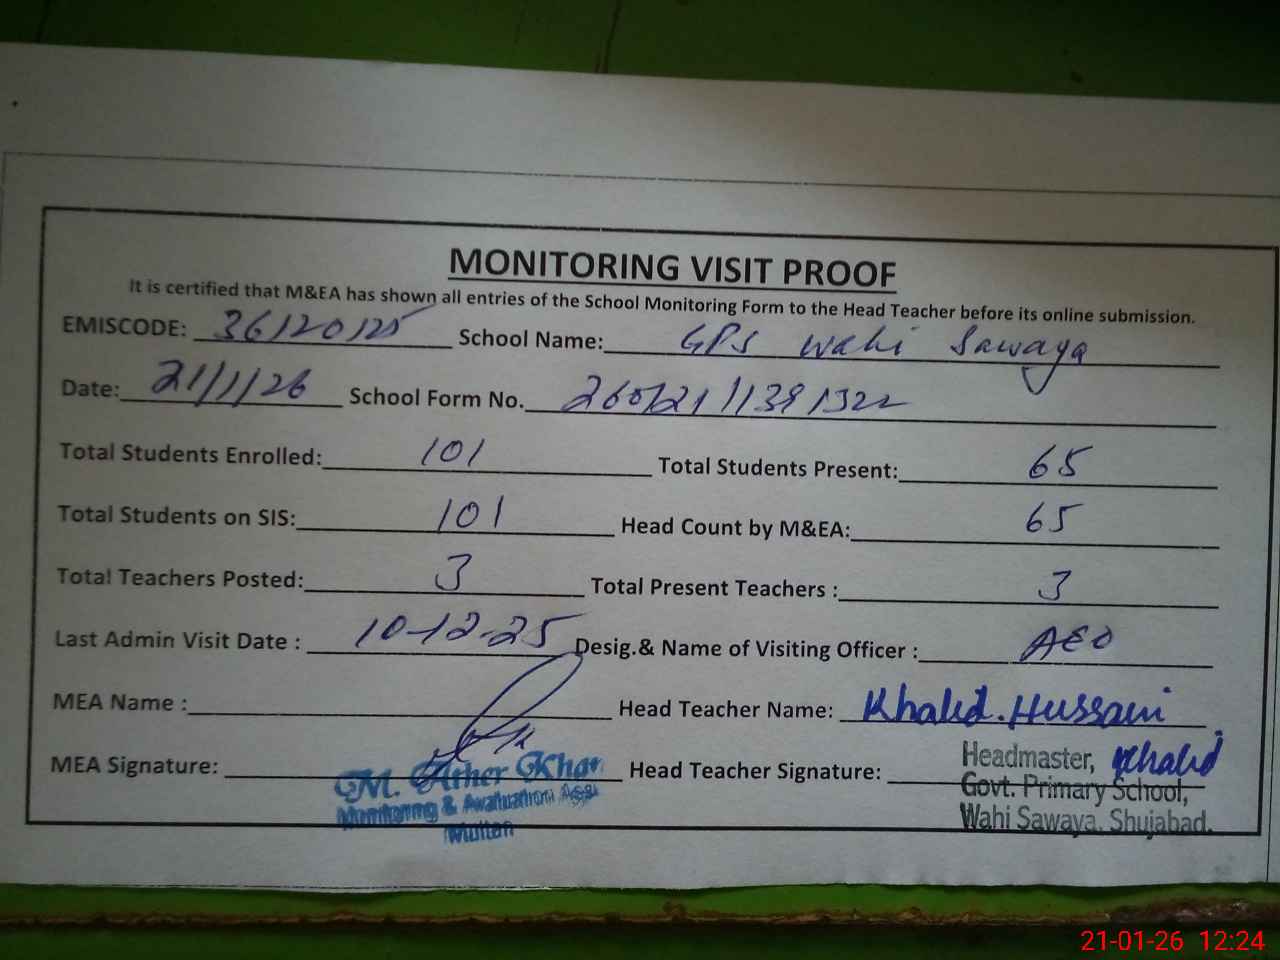 MONITORING VISIT PROOF
It is certified that M&EA has shown all entries of the School Monitoring Form to the Head Teacher before its online submission.
EMISCODE: 36120125 School Name: GPS Wahi Sawaya
Date: 21/1/26 School Form No.
Total Students Enrolled: 101 Total Students Present: 65
Total Students on SIS: 101 Head Count by M&EA: 65
Total Teachers Posted: 3 Total Present Teachers : 3
Last Admin Visit Date : 10-12-25 Desig.& Name of Visiting Officer : AEO
MEA Name : Head Teacher Name: Khalid. Hussain
MEA Signature: Head Teacher Signature: Khalid
M. Ather Khan
Monitoring &
Multan
Headmaster,
Govt. Primary School,
Wahi Sawaya. Shujabad.
21-01-26 12:24